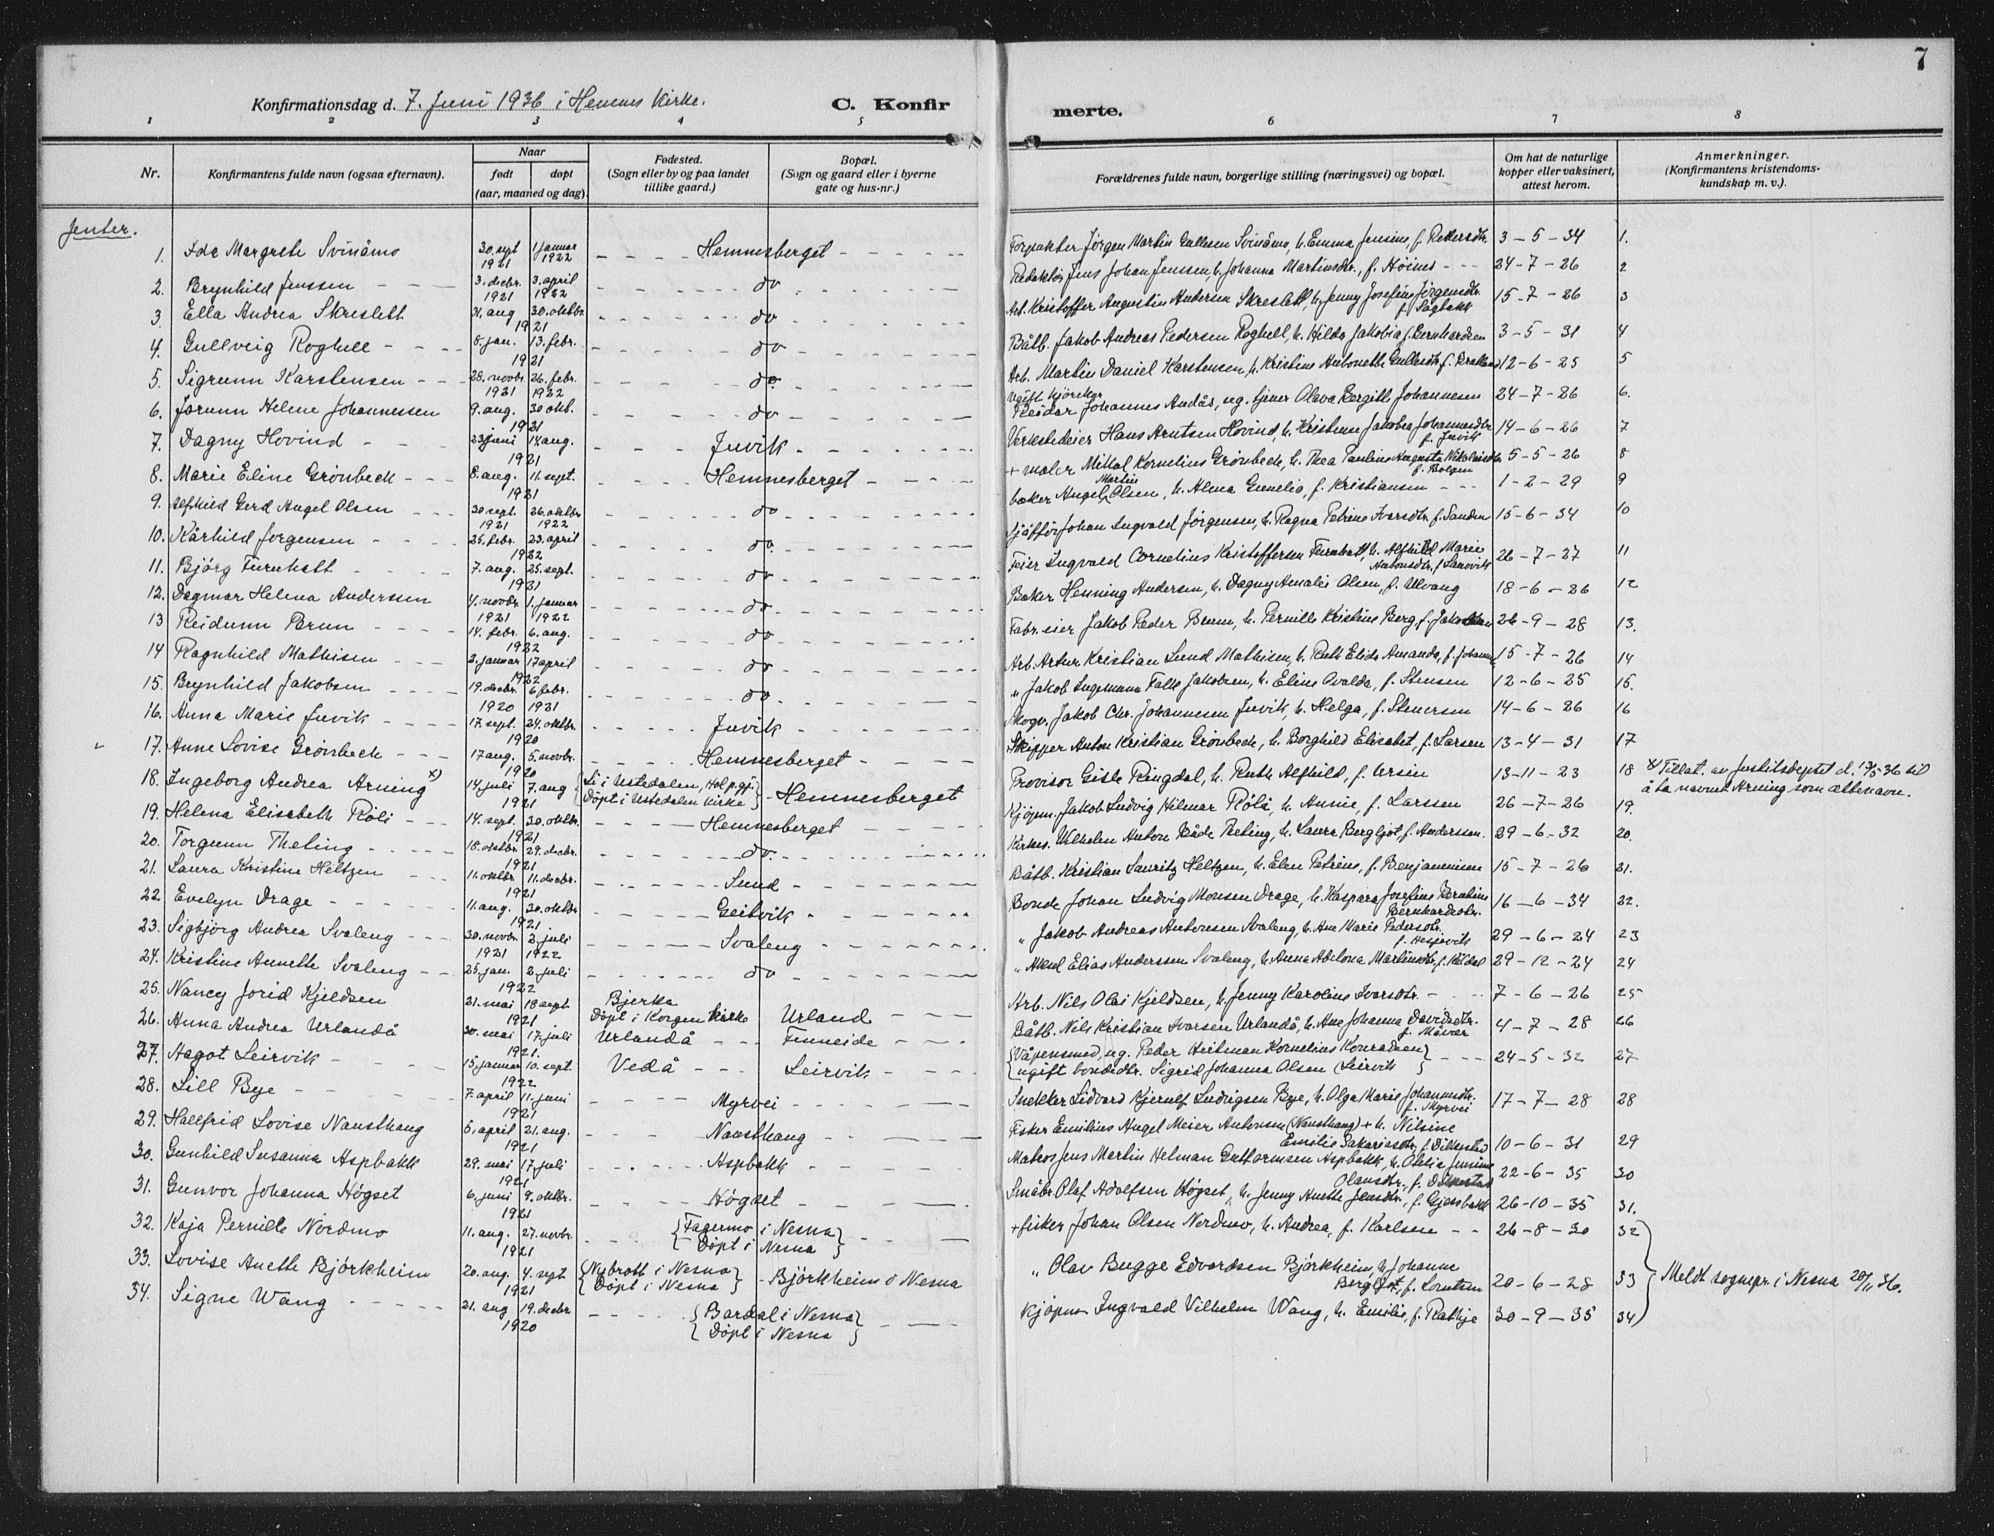 7
Konfirmationsdag d. 7. Juni 1936 i Hemnes Kirke. C. Konfir merte.
1 2 3 4 5 6 7 8
Nr. Konfirmantens fulde navn (ogsaa efternavn). Naar født døpt (aar, maaned og dag). Fødested. (Sogn eller by og paa landet tillike gaard.) Bopæl. (Sogn og gaard eller i byerne gate og hus-nr.) Forældrenes fulde navn, borgerlige stilling (næringsvei) og bopæl. Om hat de naturlige kopper eller vaksinert, attest herom. Anmerkninger. (Konfirmantens kristendoms-kundskap m. v.).
Jenter.
1. Ida Margrete Svinåmo 30. sept 1921 1 januar 1922 Hemnesberget Forpakter Jörgen Martin Gullesen Svinåmo, h. Emma Jensine, f. Pettersdtr 3-5-34 1.
2. Brynhild Jenssen 3. decbr. 1921 3. april 1922 do Redaktör Jens Johan Jenssen, h. Johanna Martinsdtr., f. Höines 24-7-26 2
3. Ella Andrea Skreslett 21. aug 30. oktbr 1921 do Arb. Kristoffer Augustin Andersen Skreslett, h. Jenny Josefine Jörgensdtr. f. Sagbakk 15-7-26 3
4. Gullveig Roghell 8. jan. 13. febr. 1921 do Båtb. Jakob Andreas Pedersen Roghell, h. Hilda Jakobia f. Bernhardsen 3-5-31 4
5. Sigrunn Karstensen 28. novbr. 1921 26. febr. 1922 do. Arb. Martin Daniel Karstensen, h. Kristine Antonette Gullesdtr. 12-6-25 5
6. Jorunn Helene Johannessen 9. aug. 30 okt. 1921 do Ugift Reidar Johannes Andås, ug. tjener Olava Bergitte Johannesen 24-7-26 6.
7. Dagny Hovind 23 juni 14. aug. 1921 Juvik Verkstedeier Hans Arntsen Hovind, h. Kristense Jakobea Johannesdtr. f. Juvik 14-6-26 7
8. Marie Eline Grönbeck 8. aug. 11. sept. 1921 Hemnesberget + maler Mikal Kornelius Grönbeck, h. Thea Pauline Augusta Nikolaisdtr. f. Bolgen 5-5-26 8
9. Alfhild Gerd Angel Olsen 30. sept. 1921 26. oktbr. 1922 do baker Angel Martin Olsen, h. Alma Gunelia, f. Kristiansen 1-2-29 9
10. Kårhild Jørgensen 25. febr. 23. april 1922 do. Sjåffør Johan Ingvald Jørgensen, h. Ragna Petrine Ivarsdtr. f. Sanden 15-6-34 10
11. Bjørg Furuhatt 7. aug. 25. sept. 1921 do Feier Ingvald Cornelius Kristoffersen Furuhatt, h. Alfhild Marie Antonsdtr. f. Sandvik 26-7-27 11
12. Dagmar Helena Andersen 4. novbr. 1921 1. januar 1922 do Baker Henning Andersen, h. Dagny Amalie Olsen, f. Ulvang 18-6-26 12
13 Reidunn Brun 14. febr. 6. aug. 1922 do Fabr. eier Jakob Peder Brun, h. Pernille Kristine Berg, f. Jakobsen 26-9-28 13.
14 Ragnhild Mathisen 2. januar 17 april 1922 do Arb. Artur Kristian Lund Mathisen, h. Ruth Elida Amanda, f. Johansen 15-7-26 14
15. Brynhild Jakobsen 19. decbr. 1920 6 febr. 1921 do " Jakob Ingemann Falk Jakobsen, h. Eline Ovalda, f. Stensen 12-6-25 15.
16. Anna Marie Juvik 17. sept. 24. oktbr. 1920 Juvik Skogv. Jakob Chr. Johannesen Juvik, h. Helga, f. Stenersen 14-6-26 16
17. Anne Lovise Grönbeck 17 aug. 5. novbr. 1920 Hemnesberget Skipper Anton Kristian Grönbeck, h. Borghild Elisabet, f. Larsen 13-4-31 17
18. Ingeborg Andrea Arning x) 14. juli 7. aug 1921 {Li i Ustedalen, Hol pgj. Döpt i Ustedalen Kirke} Hemnesberget Provisor Gisle Ringdal, h. Ruth Alfhild, f. Ursin 13-11-23 18 x) Tillat. av Justitsdeptet d. 13/5 36 til å ta navnet Arning som ættenavn.
19. Helena Elisabeth Röli 14. sept. 30. oktbr. 1921 Hemnesberget Kjöpm. Jakob Ludvig Hilmar Röli, h. Annie, f. Larssen 26-7-26 19.
20. Torgunn Theting 18. oktbr. 29. decbr. 1921 do. Kirkes. Vilhelm Anton Theting, h. Laura Bergljot, f. Anderssen. 29-6-32 20.
21. Laura Kristine Heltzen 11. oktbr 11. decbr. 1921 Sund Båtb. Kristian Lauritz Heltzen, h. Elen Petrine, f. Benjaminsen 15-7-26 21.
22. Evelyn Drage 11. aug. 30. oktbr. 1921 Geitvik Bonde Johan Ludvig Monsen Drage, h. Kaspara Josefine Beratine Bernhardsdtr. 16-6-34 22.
23. Sigbjörg Andrea Svaleng 30. novbr. 1921 2. juli 1922 Svaleng " Jakob Andreas Antonsen Svaleng, h. Ane Marie Pedersdtr. 29-6-24 23
24. Kristine Annette Svaleng 25. jan. 2. juli 1922 do " Aksel Elias Anderssen Svaleng, h. Anna Abelona Martinsdtr. f. Kildal 29-12-24 24
25. Nancy Jorid Kjeldsen 21. mai 18 sept 1921 Bjerka Döpt i Korgen Kirke Urland Arb. Nils Olai Kjeldsen, h. Jenny Karoline Ivarsdtr. 7-6-26 25
26. Anna Andrea Urlandå 30. mai 17. juli 1921. Urlandå Finneide Båtb. Nils Kristian Ivarsen Urlandå, h. Ane Johanna Davidsdtr. f. Måvær 4-7-28 26
27. Hagot Leirvik 15. januar 10. sept. 1922 Vedå Leirvik {Våpensmed, ug. Peder Heitman Kornelius Konradsen ugift bondedtr. Sigrid Johanna Olsen Leirvik} 24-5-32 27
28. Lill Bye 7. april 11. juni 1921 Myrvei Snekker Sidvard Hjernlf Ludvigsen Bye, h. Olga Marie Johannsdtr. f. Myrvei 17-7-28 28
29. Hallfrid Lovise Nausthaug 6. april 21. aug. 1921 Nausthaug Fisker Emilius Angel Meier Antonsen (Nausthaug) + h. Nilsine Emilie Sakariasdtr. f. Dilkestad 10-6-31 29
30. Gunhild Susanna Aspbakk 29. mai 17. juli 1921 Aspbakk Matros Jens Martin Helman Guttormsen Aspbakk, h. Otelie Jensine Olausdtr., f. Dilkestad 22-6-35 30
31. Gunvor Johanna Högset 6. juni 9. oktbr. 1921 Högset Småbr. Olaf Adolfsen Högset, h. Jenny Anette Jensdtr. f. Gjersbakk 26-10-35 31.
32. Kaja Pernille Nordmo 11. aug. 27. novbr. 1921 {Fagermo i Nesna Döpt i Nesna} + fisker Johan Olsen Nordmo, h. Andrea, f. Karlsen 26-8-30 32
33. Lovise Anette Björkheim 20. aug. 4. sept 1921 {Nybrott i Nesna Döpt i Nesna} Björkheim o Nesna " Olav Bugge Edvardsen Björkheim, h. Johanne Bergljot, f. Lorntsen 20-6-28 33 Meldt sognepr. i Nesna 20/11 36.
34. Signe Wang 21. aug 19. decbr 1920 {Bardal i Nesna Döpt i Nesna} Kjöpm Ingvald Vilhelm Wang, h. Emilie, f. Rathje 30-9-35 34